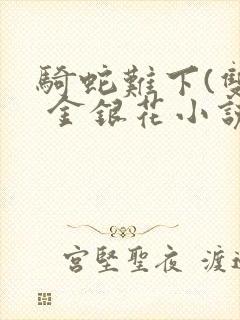 騎蛇難下(雙
金銀花小說
宮堅聖夜 渡邊